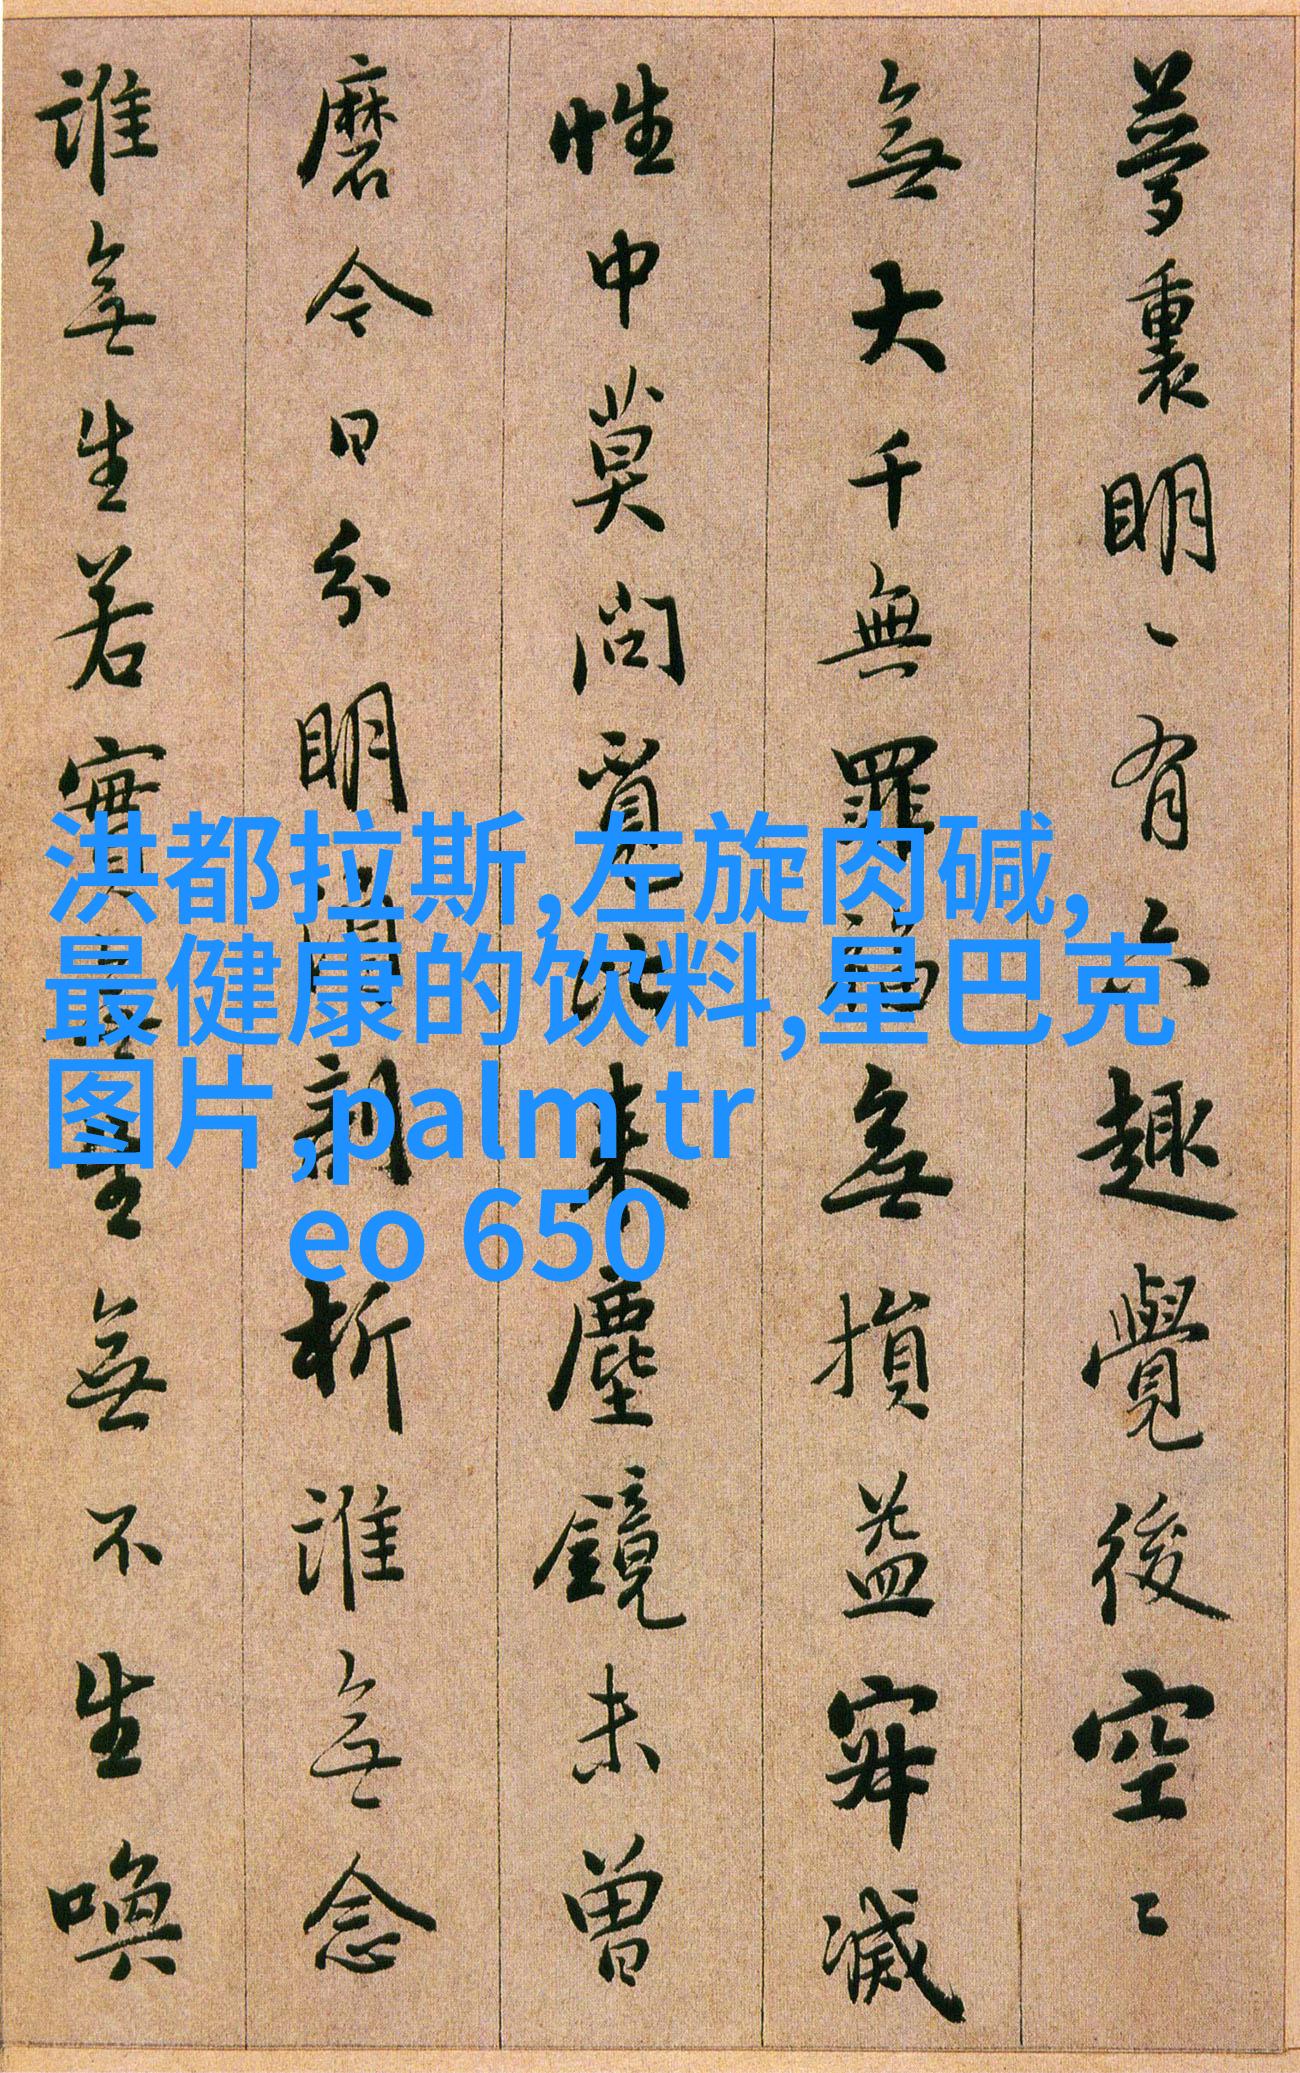 夢裏明〻有六趣覺後空〻
無大千無罪福無損益寂滅
性中莫問覓比來塵鏡未曾
磨今日分明須剖析誰無念
誰無生若實無生無不生喚
洪都拉斯,左旋肉碱,
最健康的饮料,星巴克
图片,palm tr
eo 650